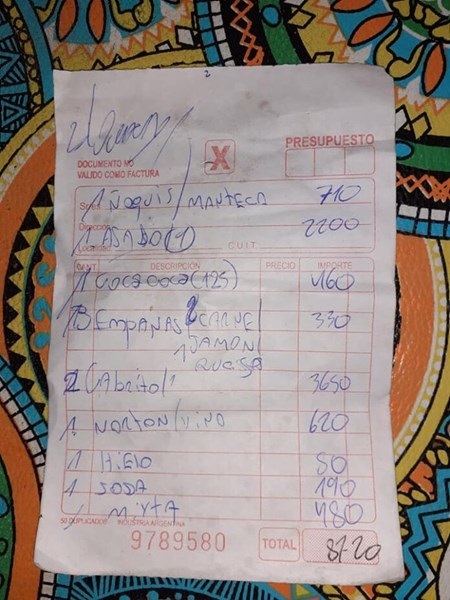 PRESUPUESTO
X
DOCUMENTO NO
VALIDO COMO FACTURA
1 ÑOQUIS / MANTECA 710
1 ASADO (1) 2200
C.U.I.T.
CANT. DESCRIPCIÓN PRECIO IMPORTE
1 Coca coca (125) 460
3 EMPANAS 2 CARNE / 330
1 JAMON /
2 CABRITO / 3650
1 NORTON / VINO 620
1 HIELO 80
1 SODA 190
1 MIXTA 480
50 DUPLICADOS INDUSTRIA ARGENTINA
9789580 TOTAL 8720